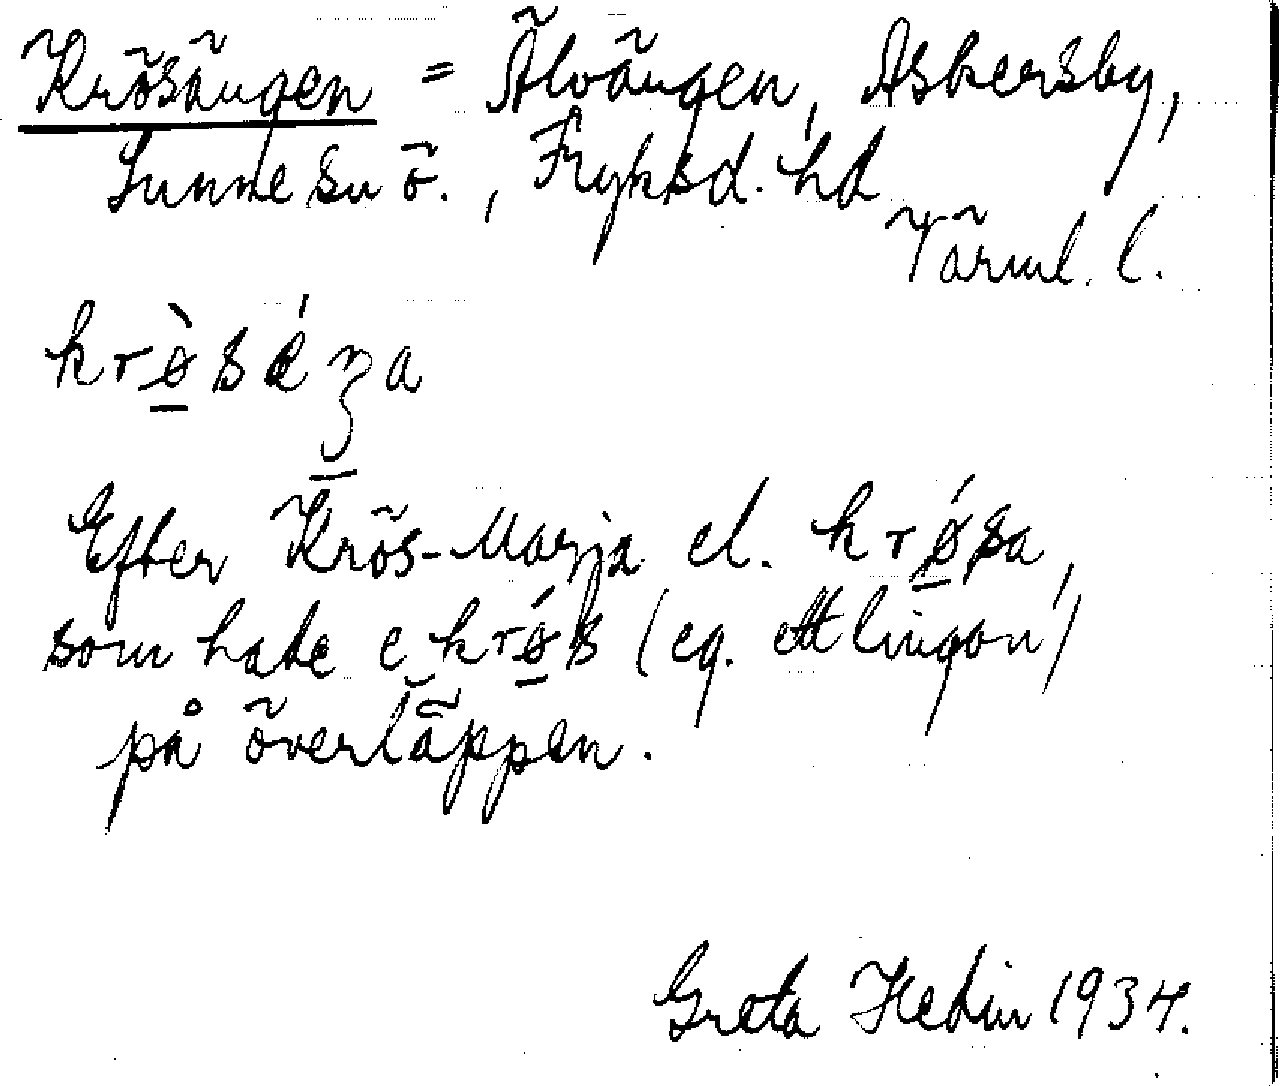 Krösängen = Älvängen, Askersby,
Sunne sn ö., Fryksd. hd
Värml. l.
Efter Krös-Marja el. krǿsa,
som hade e krǿs (eg. ett lingon)
på överläppen.
Greta Hedin 1934.